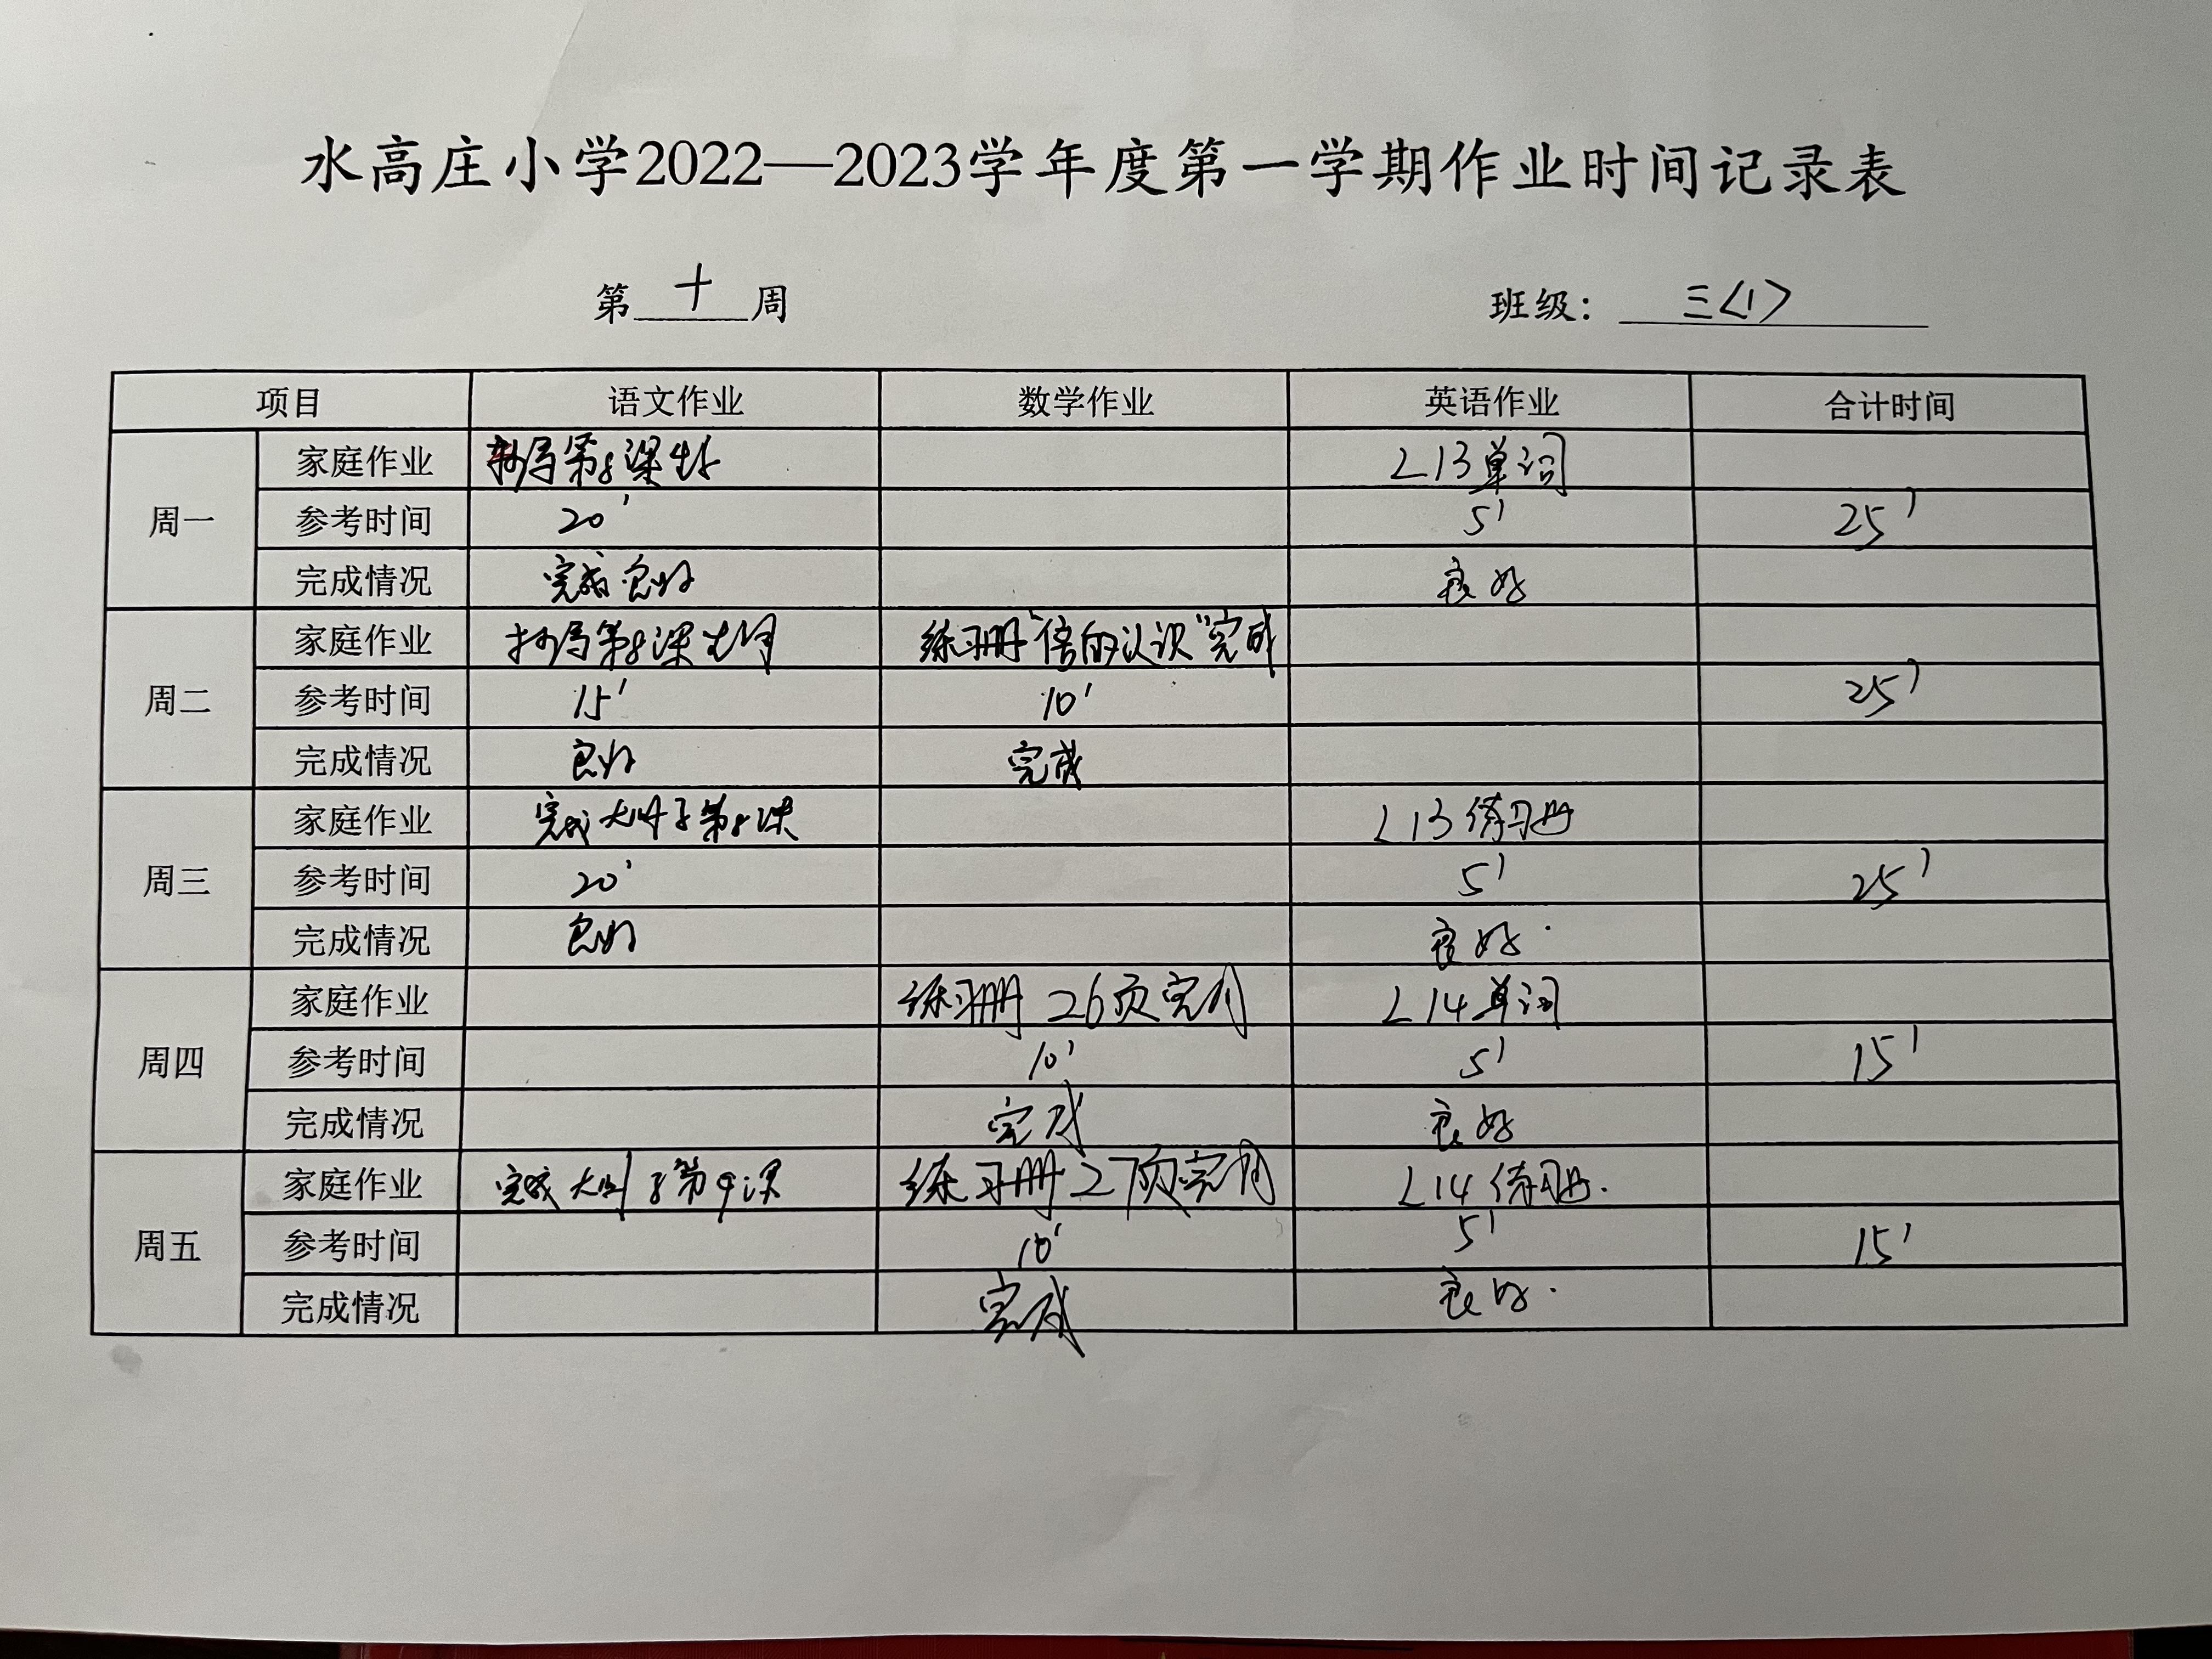 水高庄小学2022—2023学年度第一学期作业时间记录表
第 十 周 班级: 三<1>
项目 语文作业 数学作业 英语作业 合计时间
周一
家庭作业 抄写第8课生字 L13单词
参考时间 20' 5' 25'
完成情况 完成良好 良好
周二
家庭作业 抄写第8课 练习册"倍的认识"完成
参考时间 15' 10' 25'
完成情况 良好 完成
周三
家庭作业 完成大册子第8课 L13练习册
参考时间 20' 5' 25'
完成情况 良好 良好.
周四
家庭作业 练习册 26页完成 L14单词
参考时间 10' 5' 15'
完成情况 完成 良好
周五
家庭作业 完成大册子第9课 练习册27页完成 L14练习册.
参考时间 10' 5' 15'
完成情况 完成 良好.